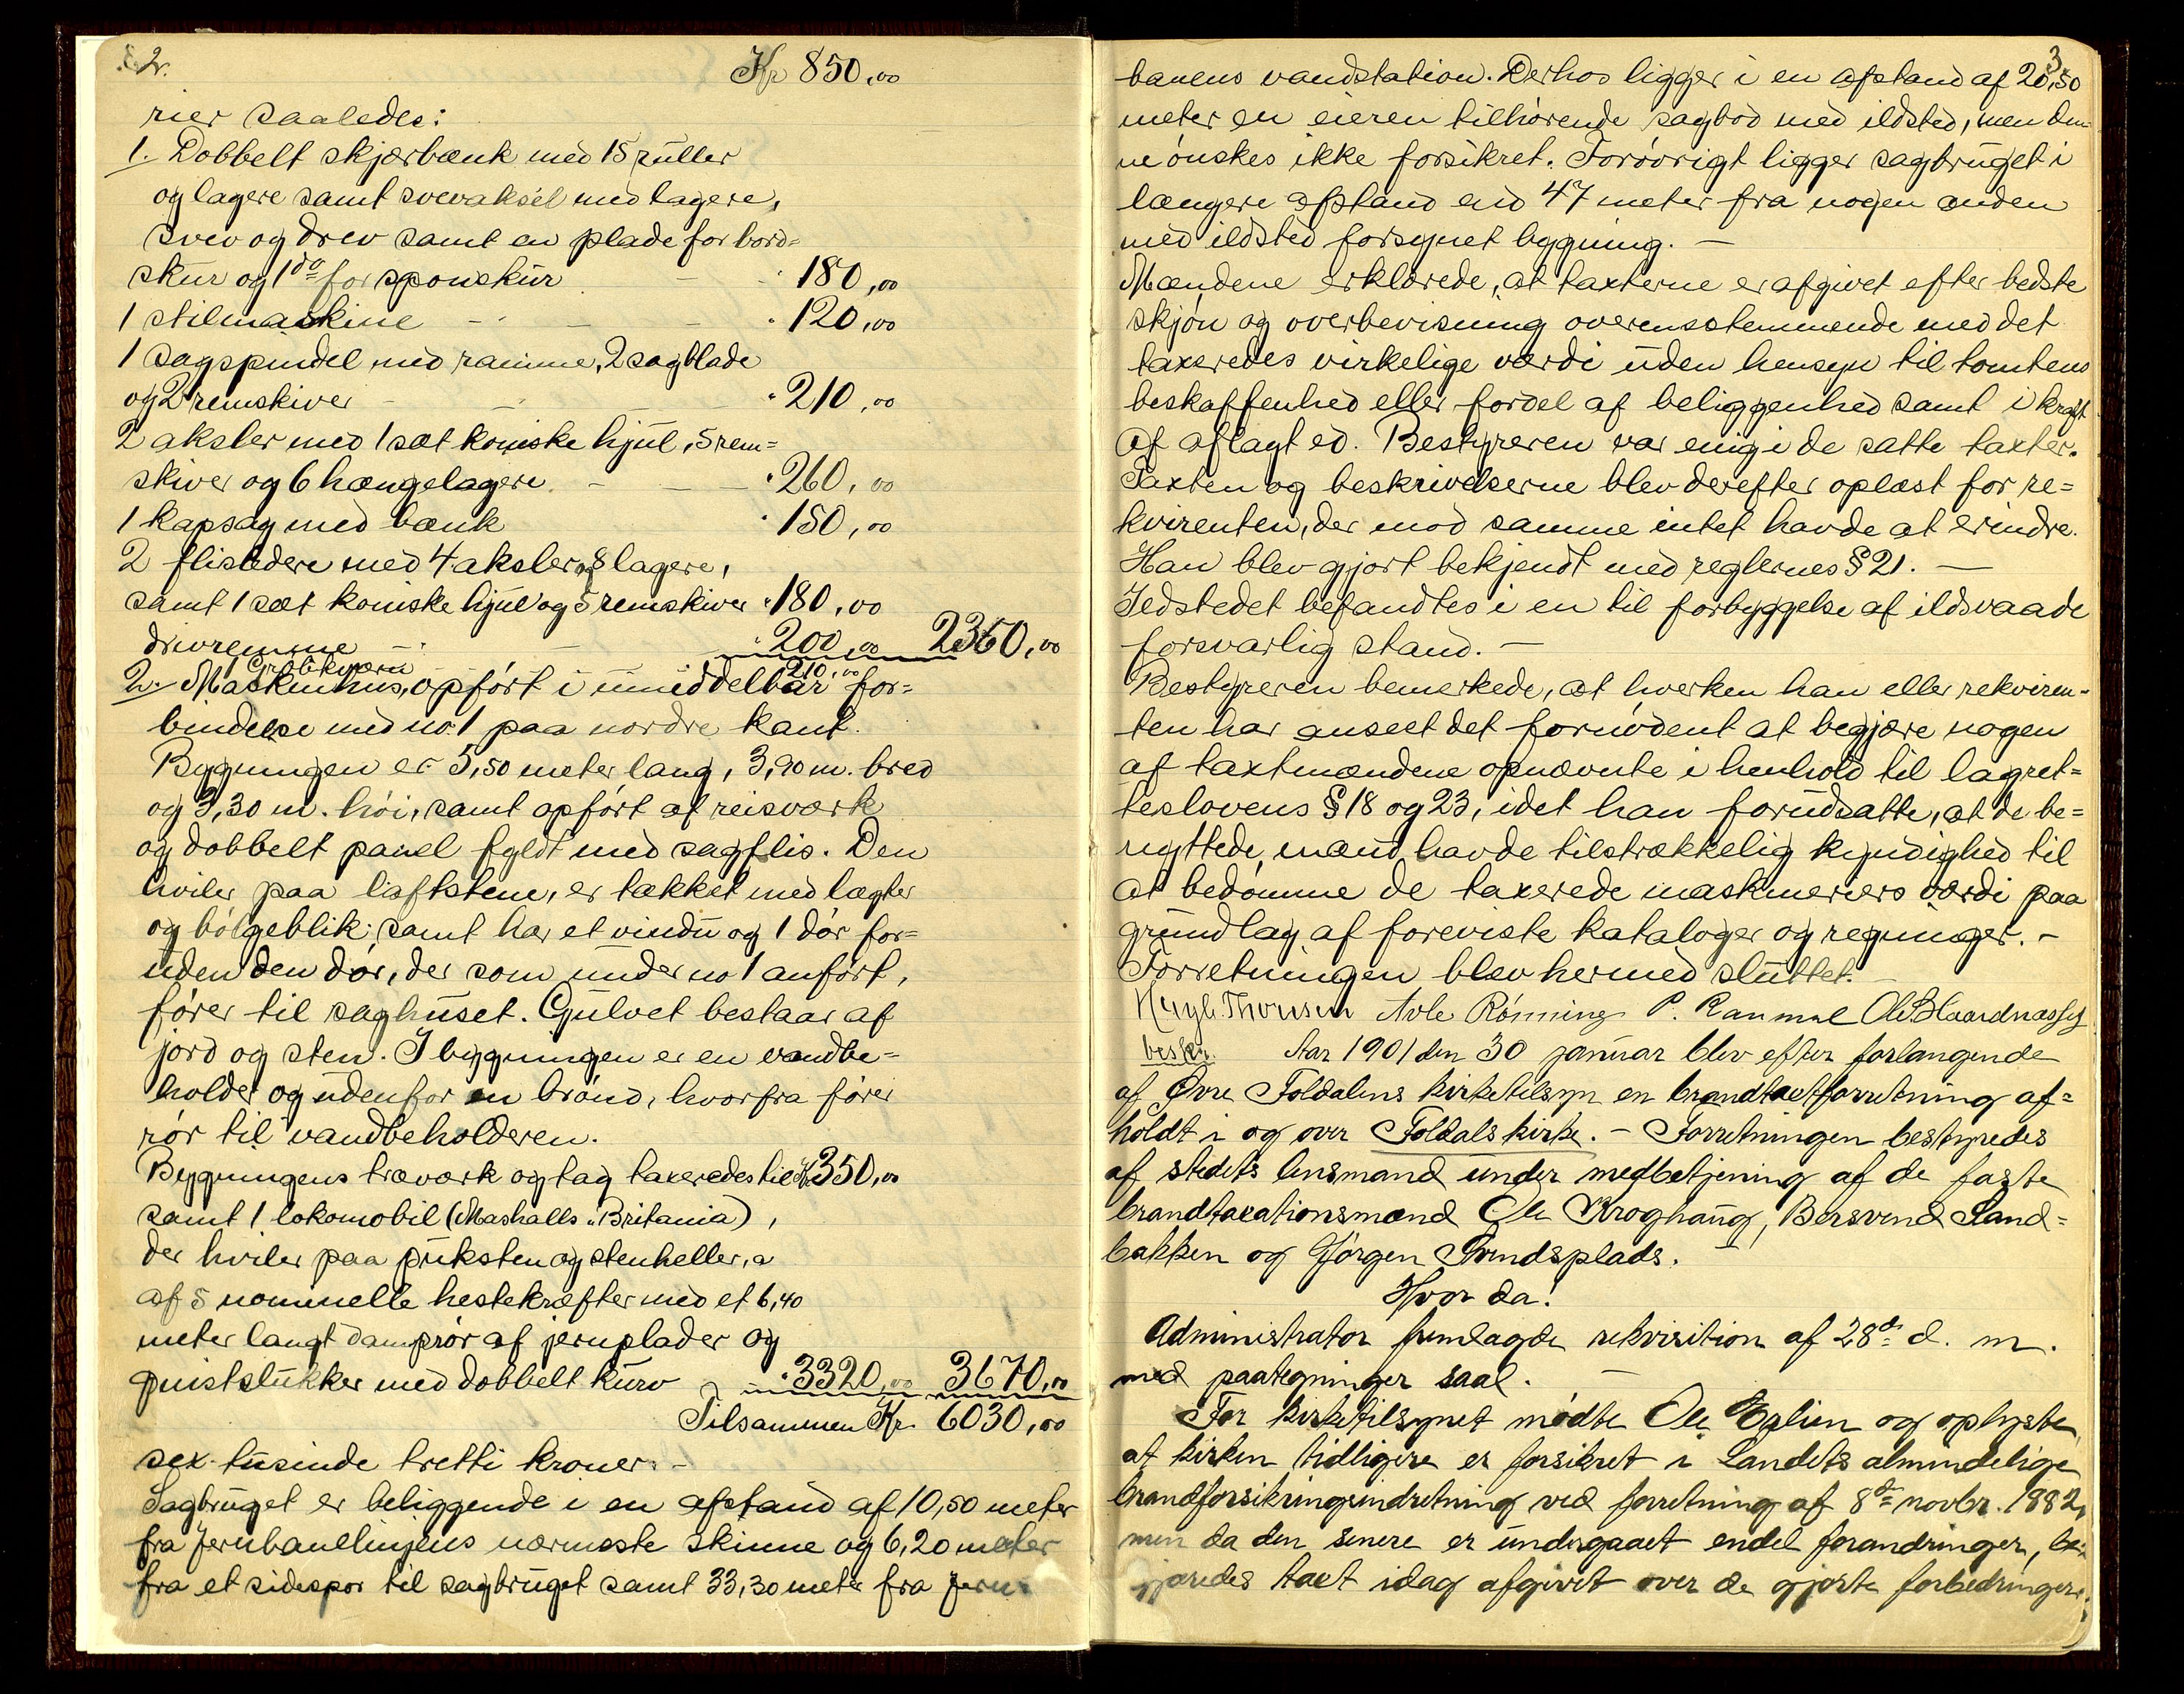 2.
Kr 850,00
rier saaledes:
1. Dobbelt skjærbænk med 15 ruller
og lagere samt svevaksel med lagere,
svev og drev samt en plade for bord=
skur og 1 do for sponskur " 180,00
1 stilmaskine - - - " 120,00
1 sagspindel med ramme, 2 sagblade
og 2 remskiver - - " 210,00
2 aksler med 1 sæt koniske hjul, 5 rem=
skiver og 6 hængelagere - - " 260,00
1 kapsag med bænk " 150,00
2 flisledere med 4 aksler og 8 lagere,
samt 1 sæt koniske hjul og 5 remskiver " 180,00
drivremme - - " 200,00 2360,00
1 Grøtkværn - - 210,00
2. Maskinhus, opført i umiddelbar for=
bindelse med no 1 paa nordre kant.
Bygningen er 5,50 meter lang, 3,90 m. bred
og 3,30 m. høi, samt opført af reisværk
og dobbelt panel fyldt med sagflis. Den
hviler paa laftstene, er tækket med lægter
og bølgeblik samt har et vindu og 1 dør for=
uden den dør, der som under no 1 anført,
fører til saghuset. Gulvet bestaar af
jord og sten. I bygningen er en vandbe=
holder og udenfor en brønd, hvorfra fører
rør til vandbeholderen.
Bygningens træværk og tag taxeredes til Kr 350,00
samt 1 lokomobil (Mashalls "Britania),
der hviler paa puksten og stenheller, a
af 5 nominelle hestekræfter med et 6,40
meter langt damprør af jernplader og
gnistslukker med dobbelt kurv - " 3320,00 3670,00
Tilsammen Kr. 6030,00
sex tusinde tretti kroner. -
Sagbruget er beliggende i en afstand af 10,50 meter
fra Jernbanelinjens nærmeste skinne og 6,20 meter
fra et sidespor til sagbruget samt 33,30 meter fra jern-
3.
banens vandstation. Derhos ligger i en afstand af 20,50
meter en eieren tilhørende sagbod med ildsted, men den=
ne ønskes ikke forsikret. Forøvrigt ligger sagbruget i
længere afstand end 47 meter fra nogen anden
med ildsted forsynet bygning. -
Mændene erklærede, at taxterne er afgivet efter bedste
skjøn og overbevisning overensstemmende med det
taxeredes virkelige værdi uden hensyn til tomtens
beskaffenhed eller fordel af beliggenhed samt i kraft
af aflagt ed. Bestyreren var enig i de satte taxter.
Taxten og beskrivelserne blev derefter oplæst for re=
kvirenten, der mod samme intet havde at erindre.
Han blev gjort bekjendt med reglernes § 21. -
Ildstedet befandtes i en til forbyggelse af ildsvaade
forsvarlig stand. -
Bestyreren bemerkede, at hverken han eller rekviren-
ten har anseet det fornødent at begjære nogen
af taxtmændene opnævnte i henhold til lagret=
teslovens § 18 og 23, idet han forudsatte, at de be=
nyttede mænd havde tilstrækkelig kyndighed til
at bedømme de taxerede maskineriers værdi paa
grundlag af foreviste kataloger og regninger. -
Forretningen blev hermed sluttet. -
Thoresen Avle Rønning P. Ranmæl
beskr. Aar 1901 den 30 januar blev efter forlangende
af Øvre Foldalens kirketilsyn en brandtaxtforretning af=
holdt i og over Foldals kirke. - Forretningen bestyredes
af stedets lensmand under medbetjening af de faste
brandtaxationsmænd Ole Kroghaug, Bersvend Sand=
bakken og Jørgen Svendsplads. -
Hvor da:
Administrator fremlagde rekvisition af 28de d. m.
med paategninger saal. -
For kirketilsynet mødte Ole Eplien og oplyste,
at kirken tidligere er forsikret i Landets almindelige
brandforsikringsindretning ved forretning af 8de novbr. 1882,
men da den senere er undergaaet endel forandringer, be=
gjæredes taxt idag afgivet over de gjorte forbedringer.